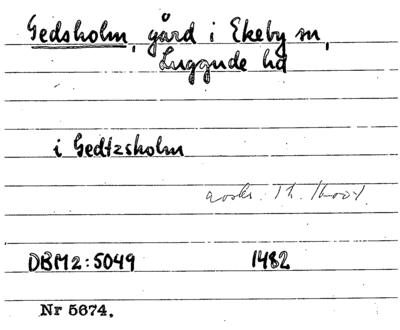 Gedsholm, gård i Ekeby sn,
Luggude hd
i Gedtzsholm
DBM2:5049 1482
Nr 5674.